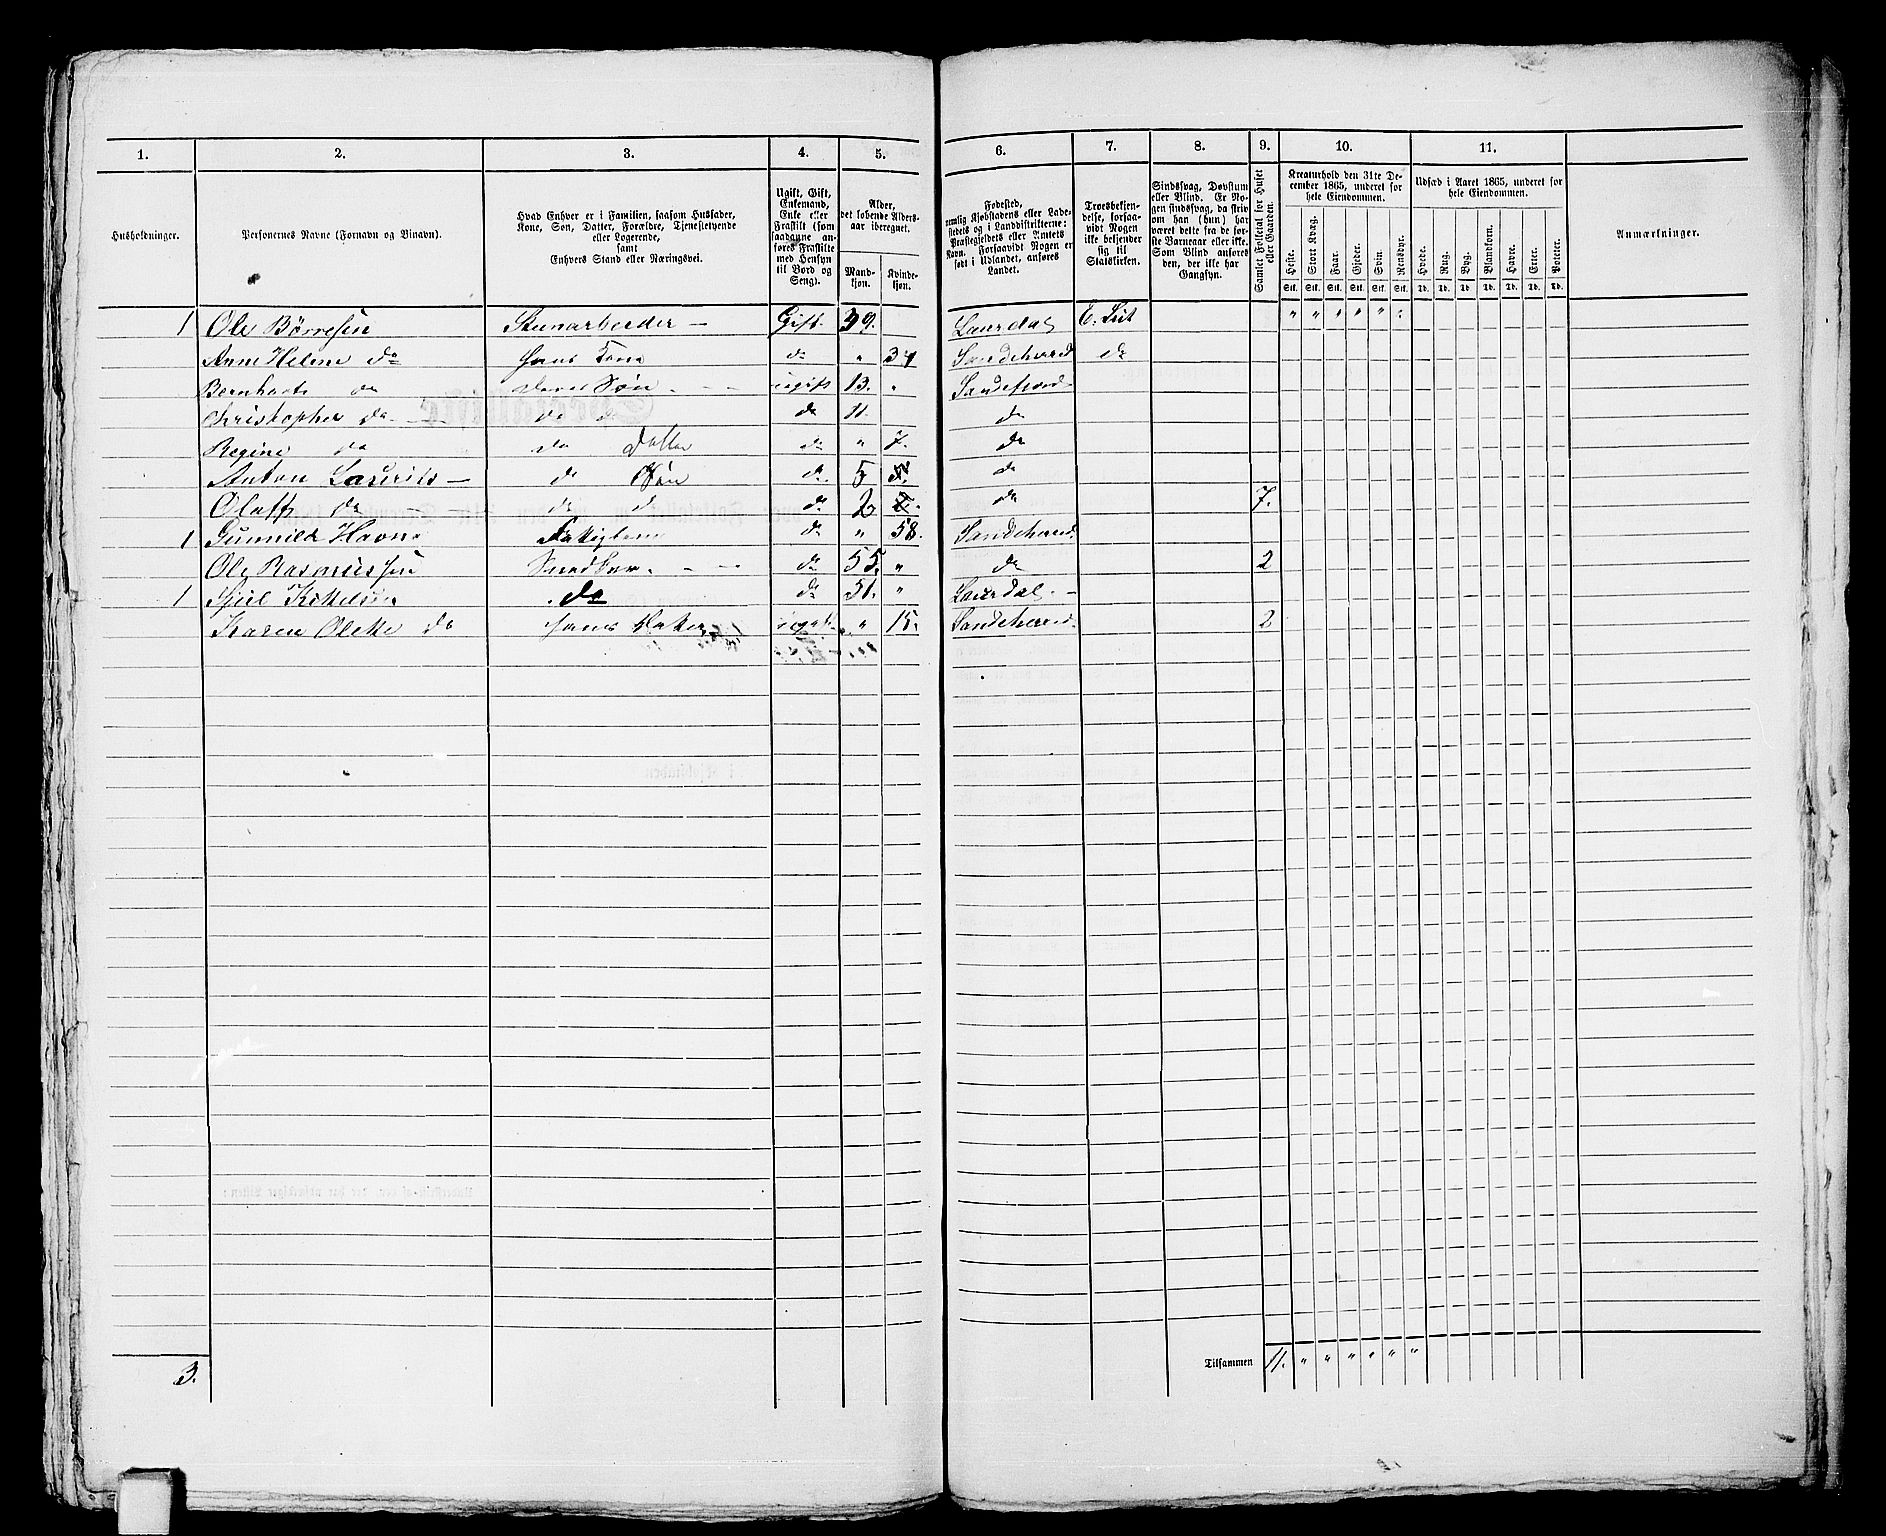 1. 2. 3. 4. 5. 6. 7. 8. 9. 10. 11.
Husholdninger.
Personernes Navne (Fornavn og Tilnavn).
Hvad Enhver er i Familien, saasom Husfader,
Kone, Søn, Datter, Forældre, Tjenestetyende
eller Logerende,
samt
Enhvers Stand eller Næringsvei.
Ugift, Gift,
Enkemand,
Enke eller
Fraskilt (som
saadanne an-
føres Fraskilte
med Hensyn
til Bord og
Seng).
Alder,
det løbende Alders-
aar iberegnet.
Mand-
kjøn.
Kvinde-
kjøn.
Fødested,
nemlig Kjøbstadens eller Lade-
stedets og i Landdistrikterne:
Præstegjeldets eller Amtets
Navn. Forsaavidt Nogen er
født i Udlandet, anføres
Landet.
Troesbekjen-
delse, forsaa-
vidt Nogen
ikke bekjender
sig til
Statskirken.
Sindssvag, Døvstum
eller Blind. Er No-
gen sindssvag, da skriv
om han (hun) har
været dette fra de før-
ste Barneaar eller ikke.
Som Blind anføres
den, der ikke har
Gangsyn.
Samlet Folketal for Huset
eller Gaarden.
Kreaturhold den 31te De-
cember 1865, underet for
hele Eiendommen.
Heste. Stort Kvæg. Faar. Gjeder. Svin. Rensdyr.
Stk. Stk. Stk. Stk. Stk. Stk.
Udsæd i Aaret 1865, underet for
hele Eiendommen.
Hvede. Rug. Byg. Blandkorn. Havre. Erter. Poteter.
Td. Td. Td. Td. Td. Td. Td.
Anmærkninger.
1 Ole Børresen Steenarbeider — Gift. 39. Laurdal E. Lut " " " " " "
Anne Helene do hans Kone do " 34 Sandeherred do
Bernhart do deres Søn - - ugift 13. " Sandefjord
Christopher do - - do do do 11. do
Regine do do Datter do " 7. do
Anton Laurits — do Søn do 5 do
Olaff do - do do do 2 do 7.
1 Gunnild Havn do " 58. Sandeherred
Ole Rasmussen Snedker. - - do 55. " do 2
1 Kittelsen do do 51. " Laurdal. -
Karen Olette do hans Datter ugift. " 15. Sandeherred 2
3.
Tilsammen 11. " " " " " "